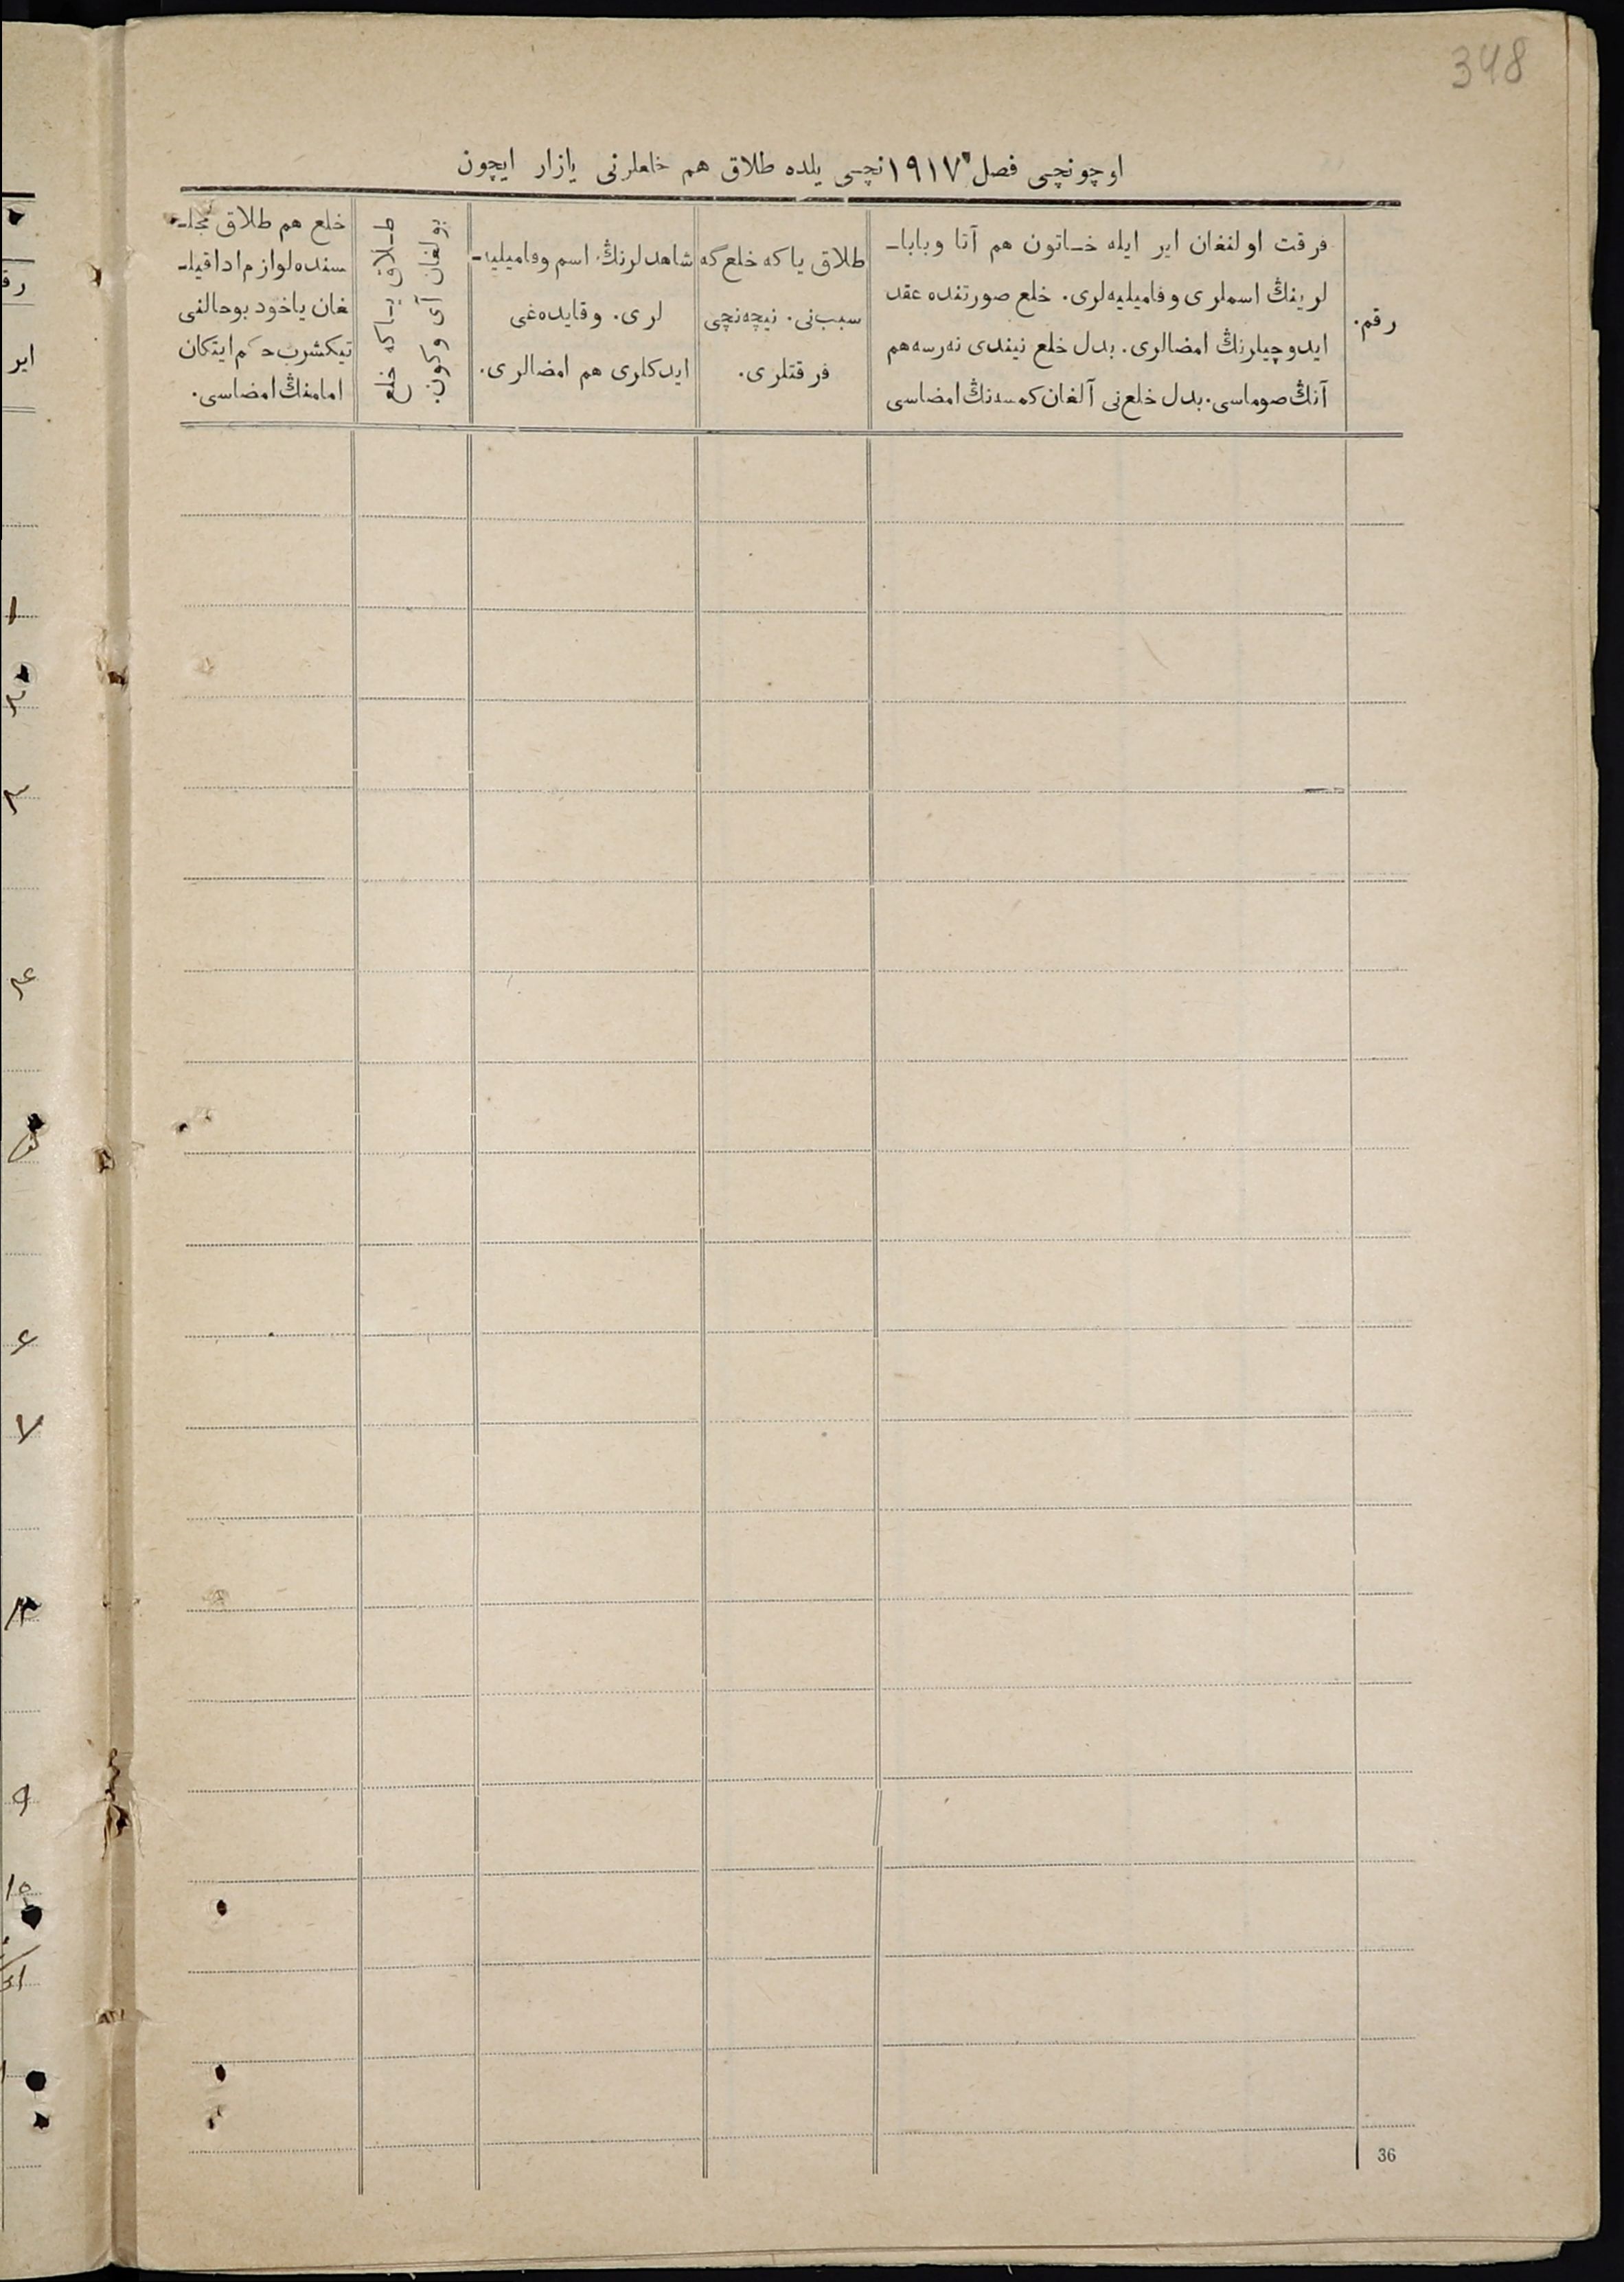 348
اوچونچی فصل ١٩١٧ نچی یلده طلاق هم خلعلرنی یازار ایچون
رقم.
فرقت اولنغان ایر ایله خاتون هم آتا وبابا-
لرینڭ اسملری وفامیلیه‌لری. خلع صورتنده عقد
ایدوچیلرنڭ امضالری. بدل خلع نیندی نه‌رسه هم
آنڭ صوماسی. بدل خلع‌نی آلغان کمسه‌نڭ امضاسی
طلاق یاکه خلع‌گه
سبب‌نی. نیچه‌نچی
فرقتلری.
شاهدلرنڭ اسم وفامیلیه-
لری. وقایده‌غی
ایدکلری هم امضالری.
طلاق یاکه خلع
بولغان آی وکون.
خلع هم طلاق مجل-
سنده لوازم ادا قیل-
غان یاخود بوحالنی
تیکشرب حکم ایتکان
امامنڭ امضاسی.
36
رق
ایر
١
٢
٣
٤
٦
٧
٩
١٠